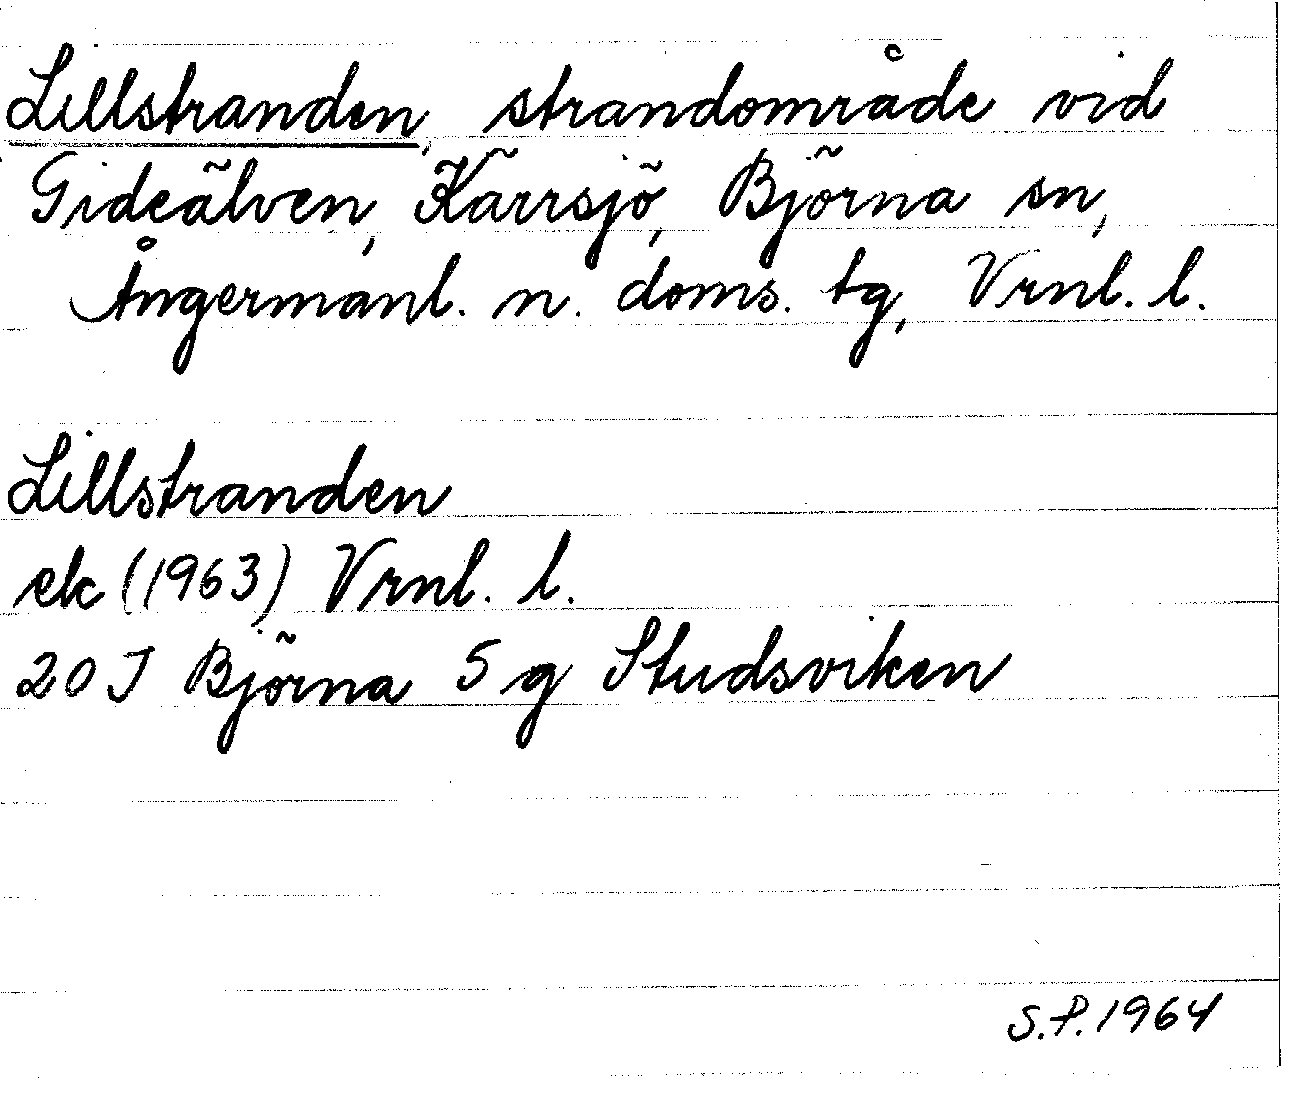 Lillstranden, strandområde vid
Gideälven, Kärrsjö, Björna sn,
Ångermanl. n. doms. tg, Vrnl. l.
Lillstranden
ek (1963) Vrnl. l.
20 J Björna 5 g Studsviken
S.P. 1964